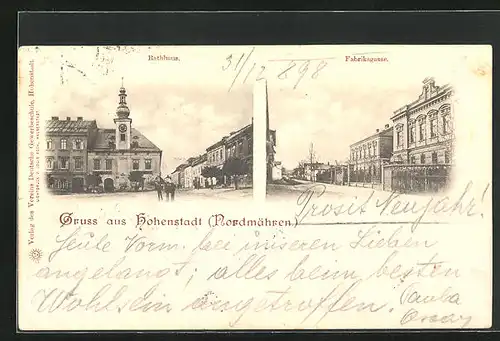 Rathhaus.
31/12 898
Fabriksgasse.
Verlag des Vereins Deutsche Gewerbeschule, Hohenstadt.
Gruss aus Hohenstadt (Nordmähren.)
Prosit Neujahr!
Heute Vorm. bei unseren Lieben
angelangt; alles beim besten
Wohlsein angetroffen.